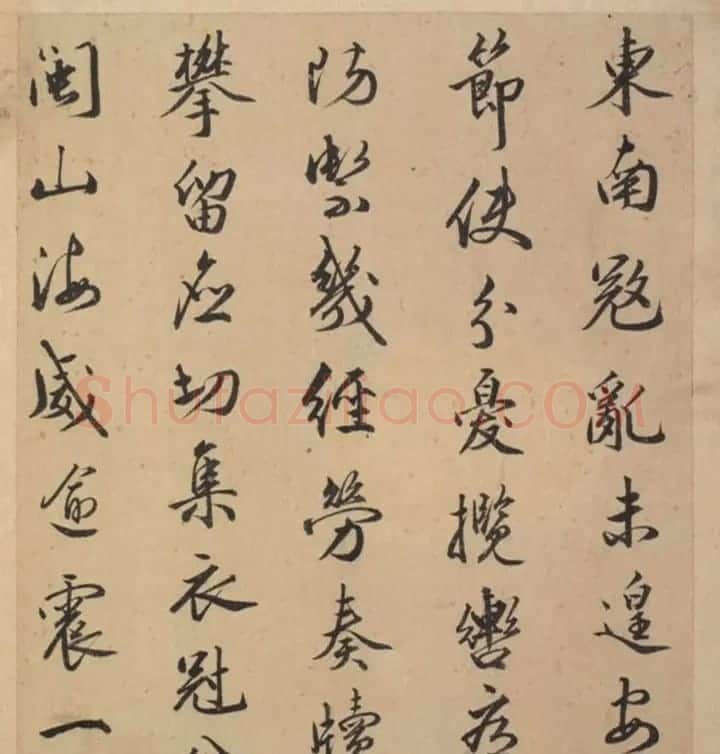 東南寇亂未遑安
節使分憂攬轡
防禦幾經勞奏牘
攀留應切集衣冠
閩山海威逾震一
Shufaziliao.COM